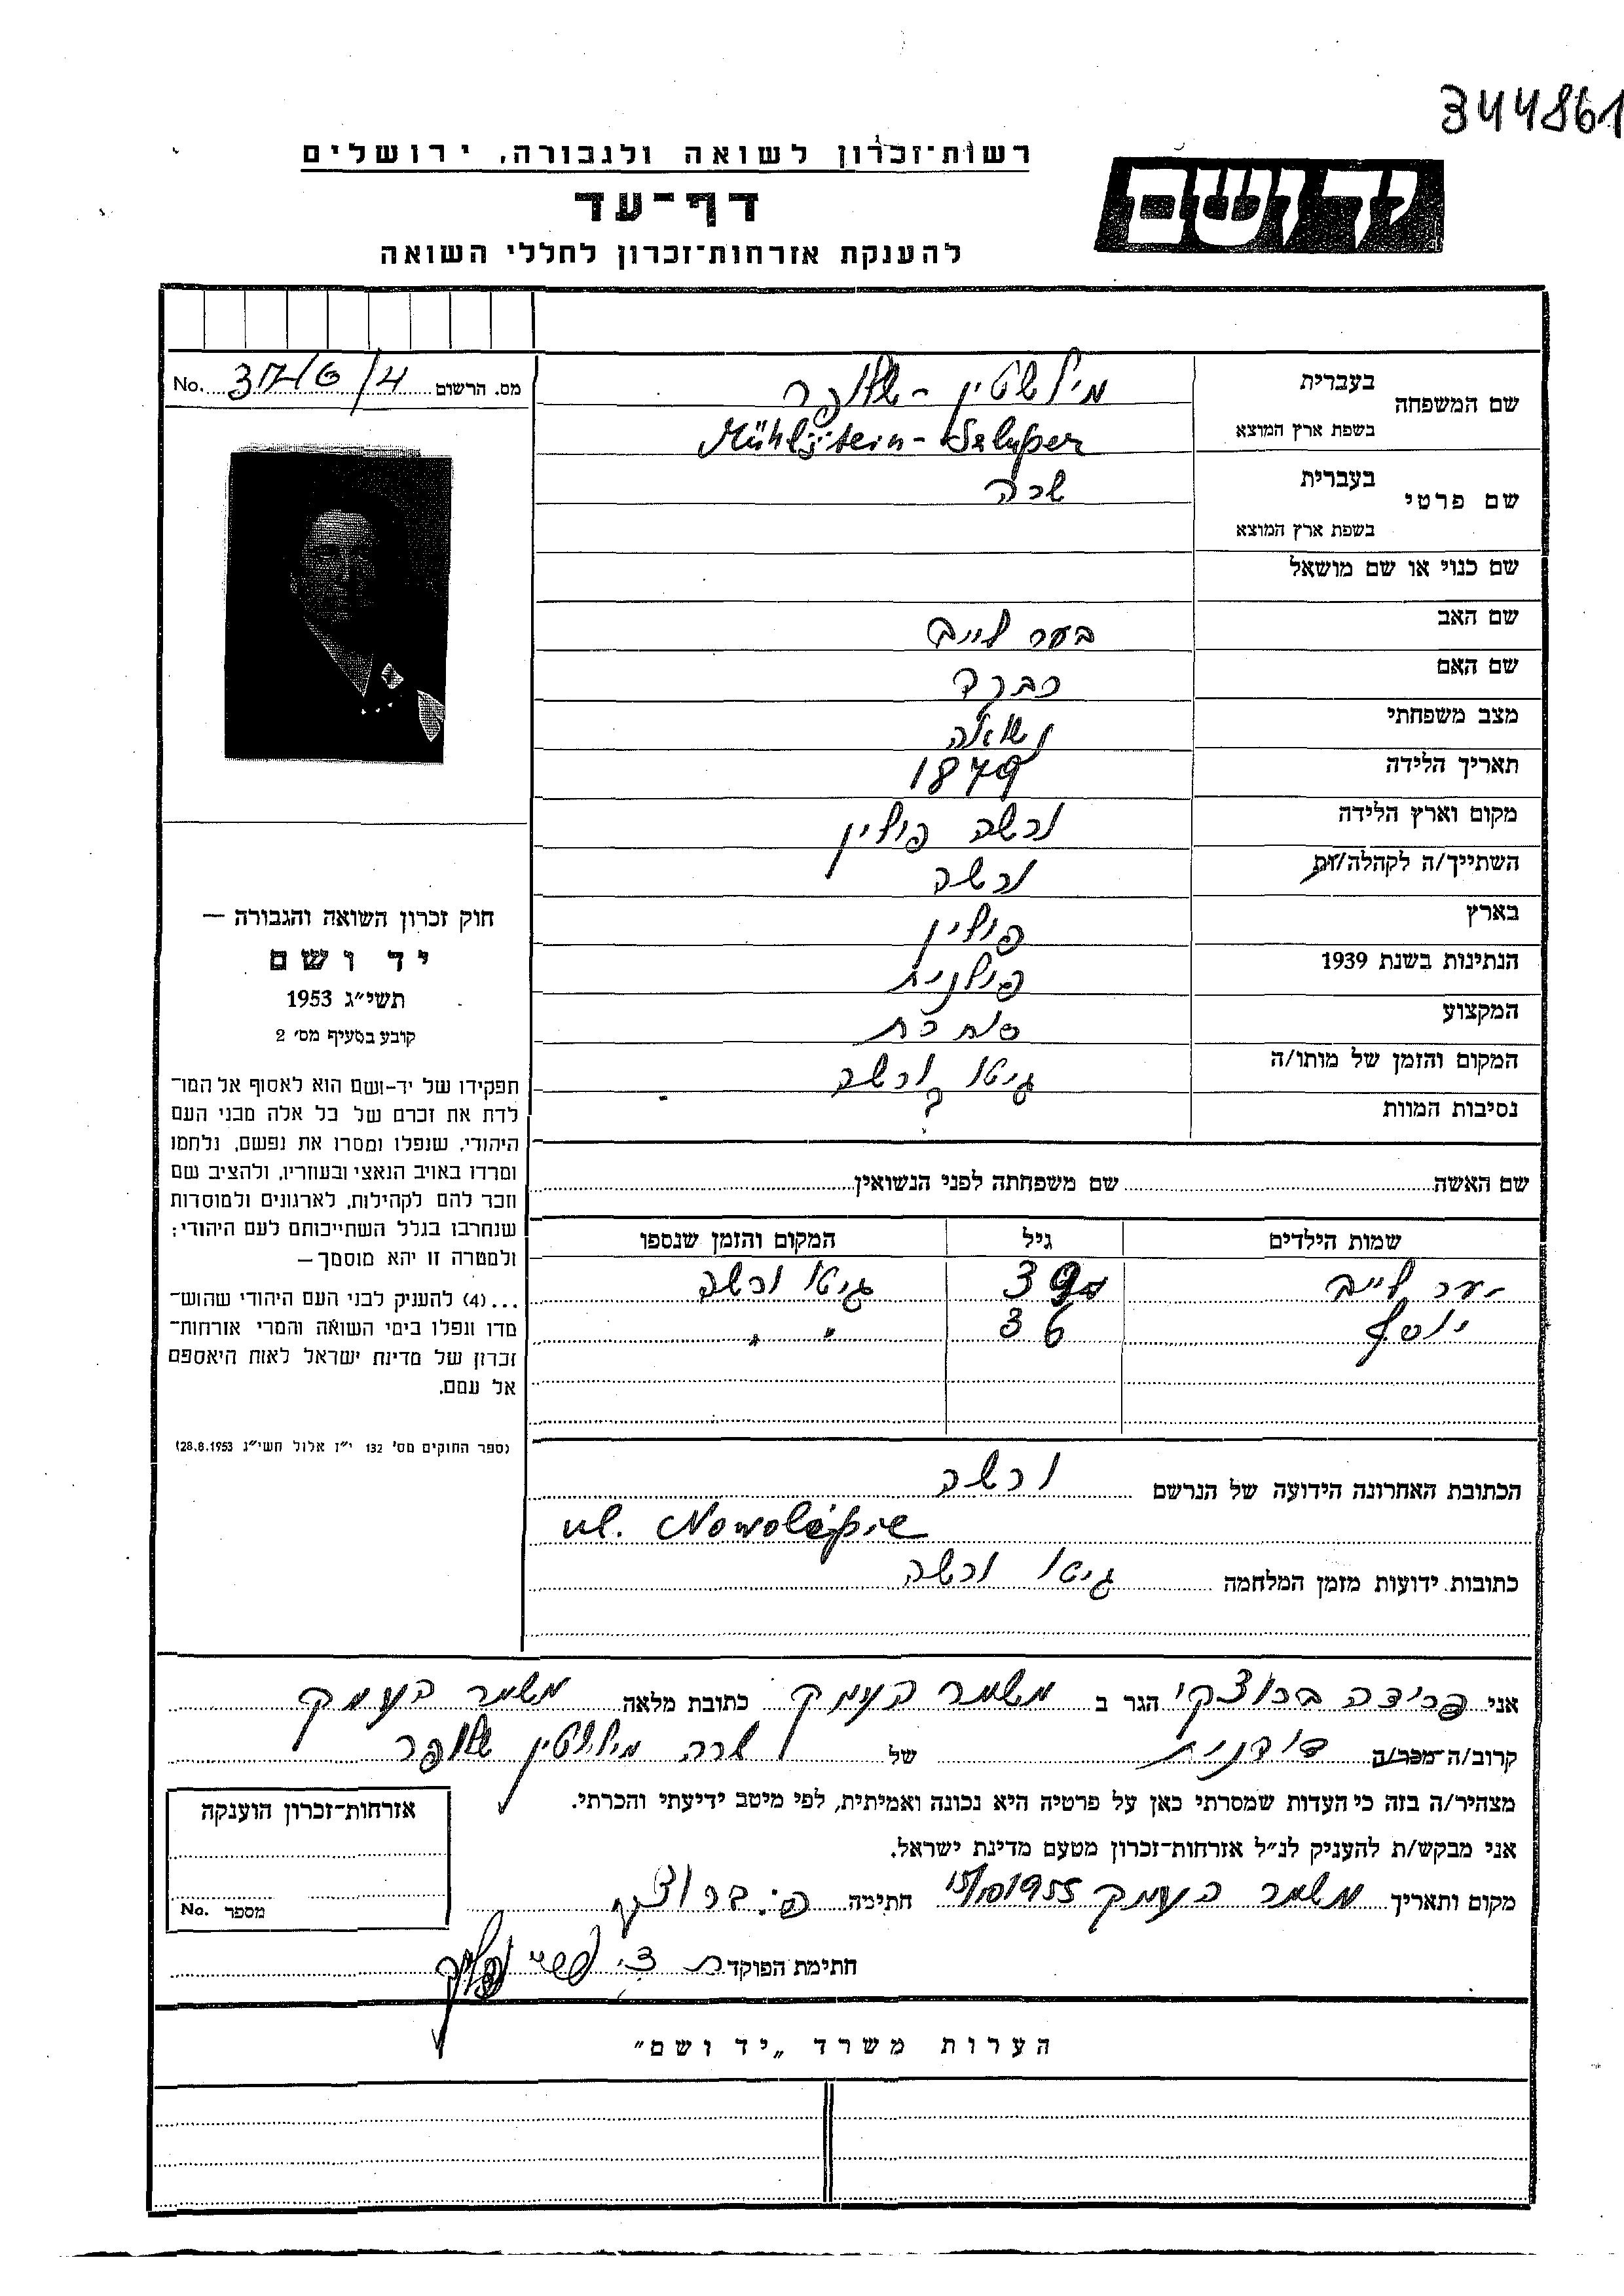 344861
רשות־זכרון לשואה ולגבורה, ירושלים
יד ושם
דף־עד
להענקת אזרחות־זכרון לחללי השואה
מס. הרשום No.
שם המשפחה
בעברית מילשטין -
בשפת ארץ המוצא Mühlstein -
שם פרטי
בעברית שרה
בשפת ארץ המוצא
שם כנוי או שם מושאל
שם האב בער לייב
שם האם
מצב משפחתי נשואה
תאריך הלידה 1879
מקום וארץ הלידה ורשה פולין
השתייך/ה לקהלה/ות ורשה
בארץ פולין
הנתינות בשנת 1939 פולנית
המקצוע סוחרת
המקום והזמן של מותו/ה גיטו ורשה
נסיבות המוות ?
שם האשה שם משפחתה לפני הנשואין
שמות הילדים גיל המקום והזמן שנספו
לייב 39 גיטו ורשה
יוסף 36 " "
הכתובת האחרונה הידועה של הנרשם ורשה
ul. Nowolipie
כתובות ידועות מזמן המלחמה גיטו ורשה
חוק זכרון השואה והגבורה —
יד ושם
תשי״ג 1953
קובע בסעיף מס׳ 2
תפקידו של יד-ושם הוא לאסוף אל המו־
לדת את זכרם של כל אלה מבני העם
היהודי, שנפלו ומסרו את נפשם, נלחמו
ומרדו באויב הנאצי ובעוזריו, ולהציב שם
וזכר להם לקהילות, לארגונים ולמוסדות
שנחרבו בגלל השתייכותם לעם היהודי;
ולמטרה זו יהא מוסמך —
...(4) להעניק לבני העם היהודי שהוש־
מדו ונפלו בימי השואה והמרי אזרחות־
זכרון של מדינת ישראל לאות היאספם
אל עמם.
(ספר החוקים מס׳ 132 י״ז אלול תשי״ג 28.8.1953)
אני פרידה ברוצקי הגר ב משמר העמק כתובת מלאה משמר העמק
קרוב/ה מכר/ה דודנית של שרה מילשטין
מצהיר/ה בזה כי העדות שמסרתי כאן על פרטיה היא נכונה ואמיתית, לפי מיטב ידיעתי והכרתי.
אני מבקש/ת להעניק לנ״ל אזרחות־זכרון מטעם מדינת ישראל.
מקום ותאריך משמר העמק 15/10 1955 חתימה פ. ברוצקי
חתימת הפוקד
אזרחות־זכרון הוענקה
מספר No.
הערות משרד „יד ושם״